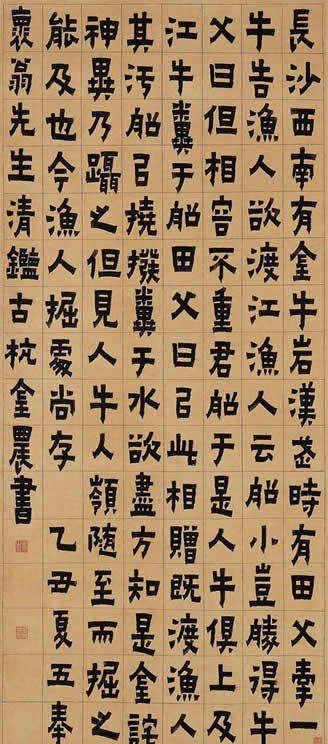 長沙西南有金牛岩漢武時有田父牽一
牛告漁人欲渡江漁人云船小豈勝得牛
父曰但相容不重君船于是人牛俱上及
江牛糞于船田父曰以此相贈既渡漁人
其汚船以橈撥糞于水欲盡方知是金詫
神異乃躡之但見人牛入嶺随至而掘之
能及也今漁人掘處尚存 乙丑夏五奉
翁先生清鑑古杭金農書